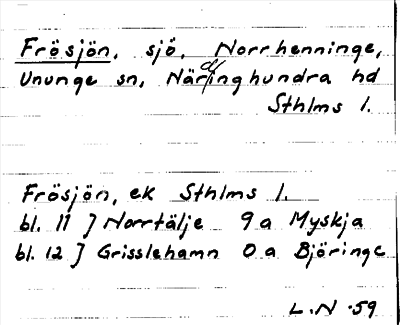 Frösjön, sjö, Norrhenninge,
Ununge sn, Närdinghundra hd
Sthlms l.
Frösjön, ek Sthlms l.
bl. 11 } Norrtälje 9a Myskja
bl. 12 } Grisslehamn 0a Björinge
L.N. -59